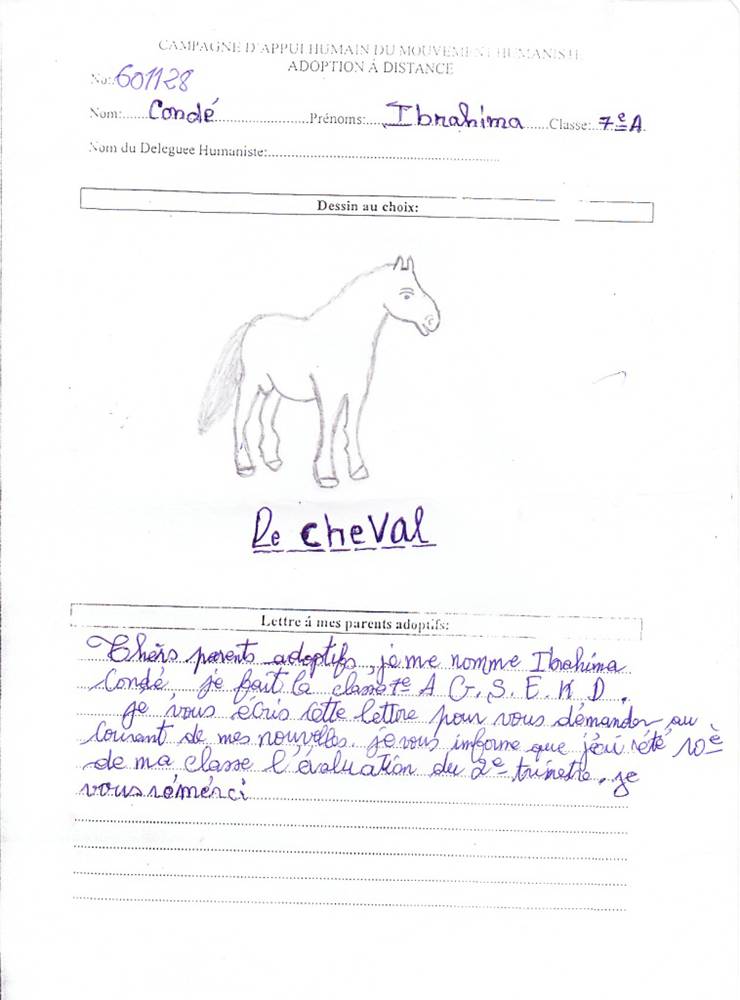 CAMPAGNE D'APPUI HUMAIN DU MOUVEMENT HUMANISTE
ADOPTION Á DISTANCE
No: 601128
Nom:......Condé......Prénoms:....Ibrahima......Classe: 7e A.
Nom du Deleguee Humaniste:......
Dessin au choix:
Le cheval
Lettre á mes parents adoptifs:
Chèrs parents adoptifs, je me nomme Ibrahima
Condé je fait la classe 7e A G. S. E. K D.
je vous ecris cette lettre pour vous démander au
courant de mes nouvelles. je vous informe que j'ai été 10è
de ma classe l'évaluation du 2e trimestre. je
vous rémerci